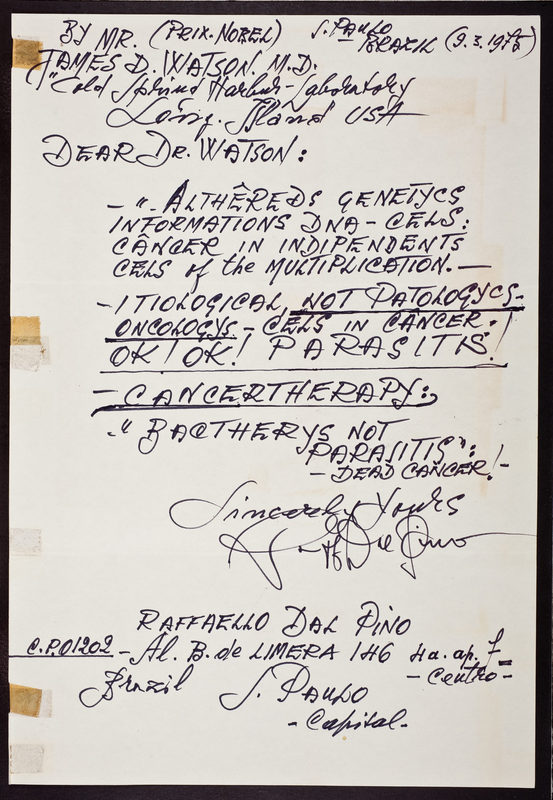 BY MR. (PRIX-NOBEL) S. PAULO
BRAZIL (9.3.1975)
JAMES D. WATSON M.D.
"Cold Sphind Harbur-Laboratory
Long. Island USA
DEAR DR. WATSON:
-". ALTHÊREDS GENETYCS
INFORMATIONS DNA-CELS:
CÂNCER IN INDIPENDENTS
CELS of the MULTIPLICATION.-
-ITIOLOGICAL, NOT PATOLOGYCS-
ONCOLOGYS-CELS IN CÂNCER:!
OK! OK! PARASITIS!
-CANCERTHERAPY:,
-" BACTHERYS NOT
PARASITIS":
-DEAD CANCER!-
Sincerely Yours
RAFFAELLO DAL PINO
C.P.01202-Al. B. de LIMERA 146 4a. ap. 7
-Centro-
Brazil S. PAULO
-Capital-